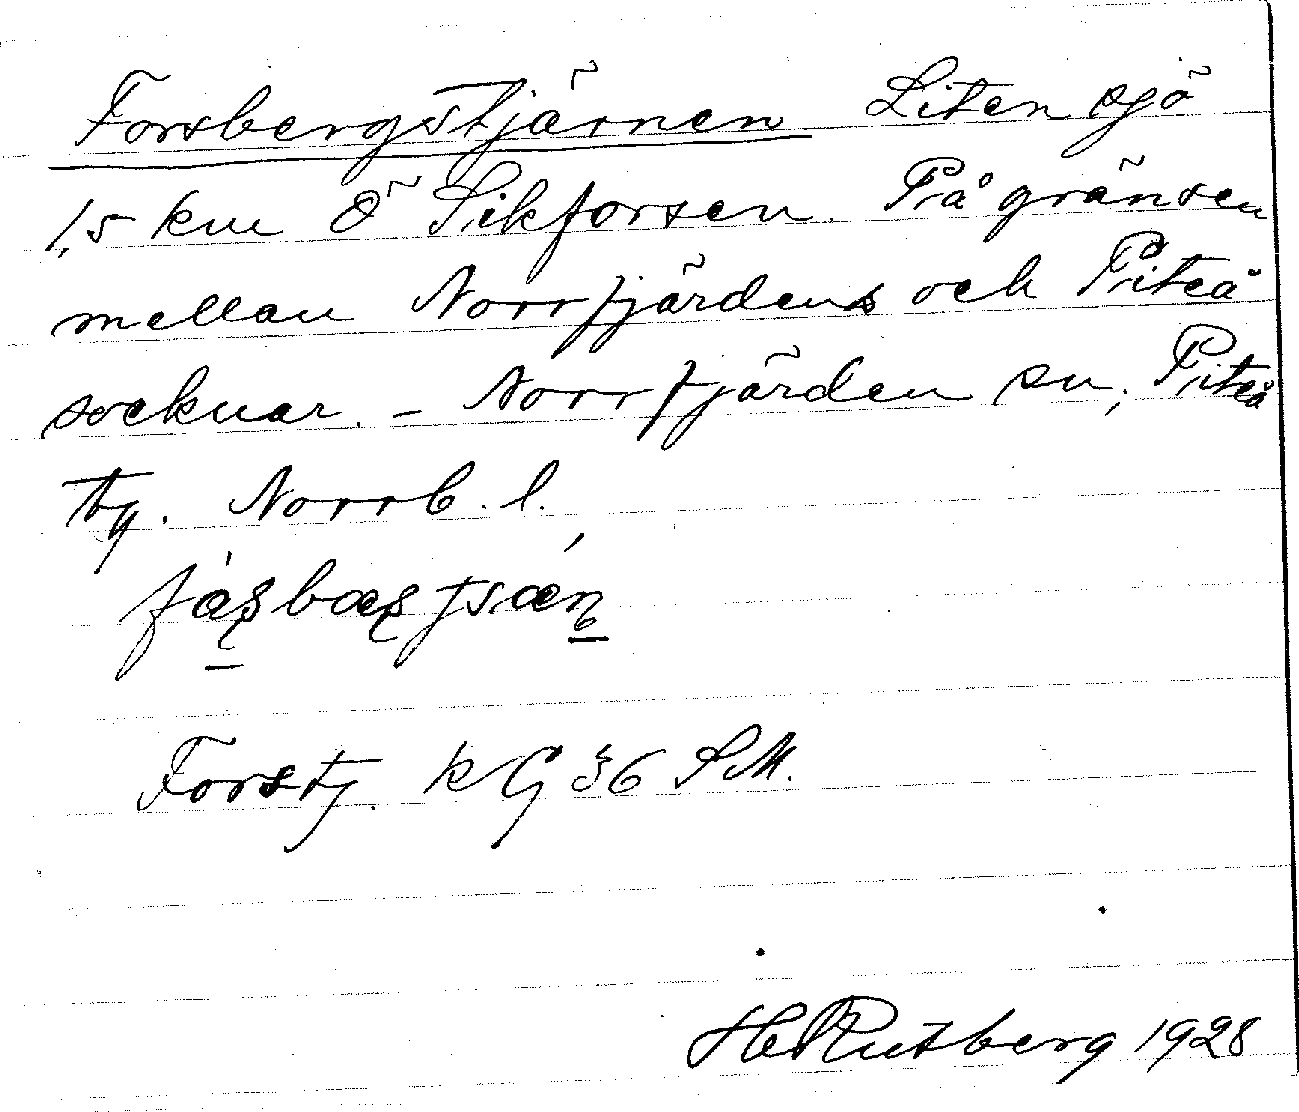 Forsbergstjärnen Liten sjö
1,5 km Ö Sikforsen. På gränsen
mellan Norrfjärdens och Piteå
socknar. – Norrfjärden sn, Piteå
tg. Norrb. l.
Forstj. k G 36 SM.
H Rutberg 1928